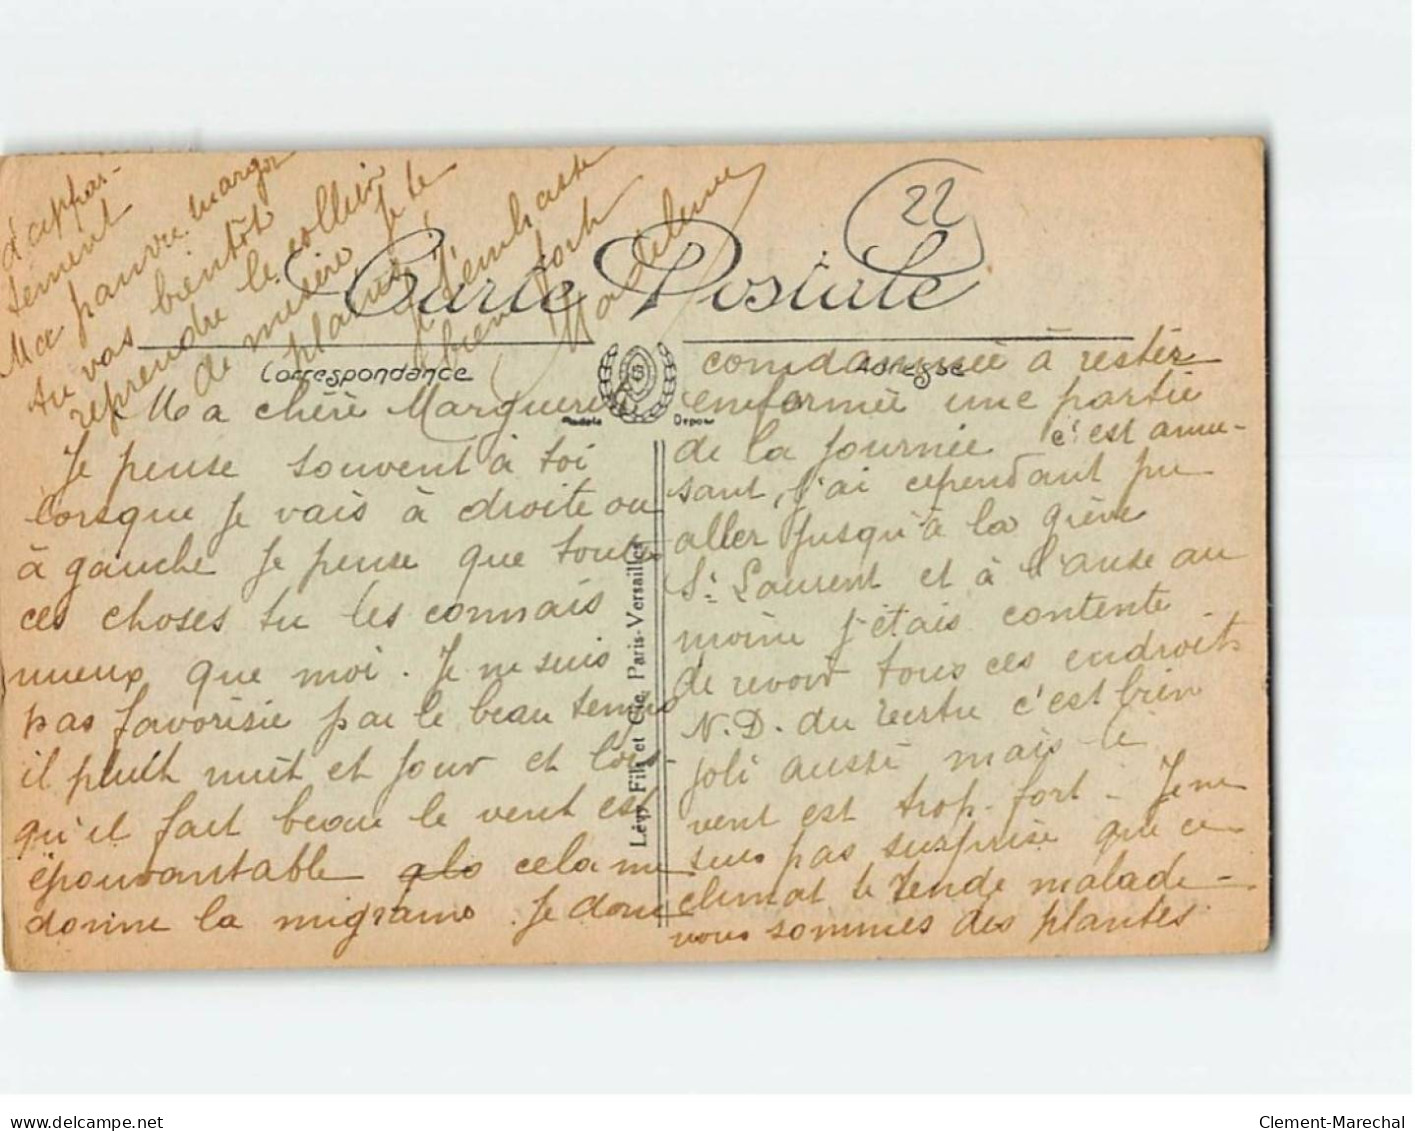 22
Carte Postale
Correspondance
Adresse
Modèle Déposé
Lévy Fils et Cie, Paris-Versailles
Ma chère Marguerite
Je pense souvent à toi
lorsque je vais à droite ou
à gauche je pense que toutes
ces choses tu les connais
mieux que moi. Je ne suis
pas favorisée par le beau temps
il pleut nuit et jour et lors-
qu'il fait beau le vent est
épouvantable cela me
donne la migraine. Je donc
condamnée à rester
enfermée une partie
de la journée c'est amu-
sant, j'ai cependant pu
aller jusqu'à la grève
St Laurent et à l'anse au
moine j'étais contente
de revoir tous ces endroits
N.D. du tertre c'est bien
joli aussi mais le
vent est trop fort - Je ne
suis pas surprise que ce
climat te rende malade -
nous sommes des plantes
d'appar-
tement
Ma pauvre margot
tu vas bientôt
reprendre le collier
de misère je te
plains
Je t'embrasse
bien fort
Madeleine
delcampe.net
Clement-Marechal